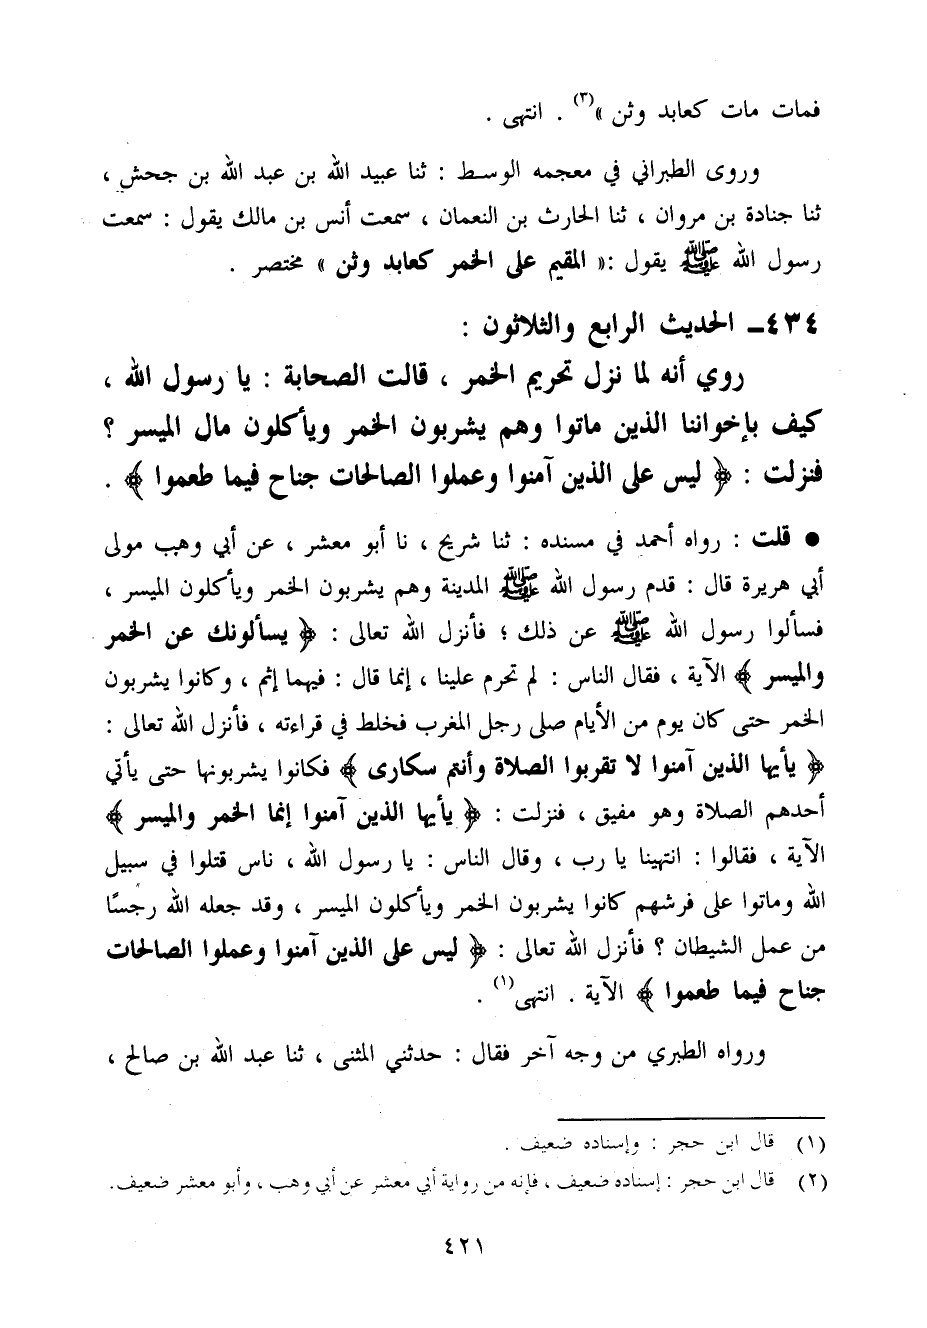 فمات مات كعابد وثن »(٣) . انتهى .
وروى الطبراني في معجمه الوسط : ثنا عبيد الله بن عبد الله بن جحش ،
ثنا جنادة بن مروان ، ثنا الحارث بن النعمان ، سمعت أنس بن مالك يقول : سمعت
رسول الله ﷺ يقول :« المقيم على الخمر كعابد وثن » مختصر .
٤٣٤ـ الحديث الرابع والثلاثون :
روي أنه لما نزل تحريم الخمر ، قالت الصحابة : يا رسول الله ،
كيف بإخواننا الذين ماتوا وهم يشربون الخمر ويأكلون مال الميسر ؟
فنزلت : ﴿ ليس على الذين آمنوا وعملوا الصالحات جناح فيما طعموا ﴾ .
● قلت : رواه أحمد في مسنده : ثنا شريح ، نا أبو معشر ، عن أبي وهب مولى
أبي هريرة قال : قدم رسول الله ﷺ المدينة وهم يشربون الخمر ويأكلون الميسر ،
فسألوا رسول الله ﷺ عن ذلك ؛ فأنزل الله تعالى : ﴿ يسألونك عن الخمر
والميسر ﴾ الآية ، فقال الناس : لم تحرم علينا ، إنما قال : فيهما إثم ، وكانوا يشربون
الخمر حتى كان يوم من الأيام صلى رجل المغرب فخلط في قراءته ، فأنزل الله تعالى :
﴿ يأيها الذين آمنوا لا تقربوا الصلاة وأنتم سكارى ﴾ فكانوا يشربونها حتى يأتي
أحدهم الصلاة وهو مفيق ، فنزلت : ﴿ يأيها الذين آمنوا إنما الخمر والميسر ﴾
الآية ، فقالوا : انتهينا يا رب ، وقال الناس : يا رسول الله ، ناس قتلوا في سبيل
الله وماتوا على فرشهم كانوا يشربون الخمر ويأكلون الميسر ، وقد جعله الله رجسًا
من عمل الشيطان ؟ فأنزل الله تعالى : ﴿ ليس على الذين آمنوا وعملوا الصالحات
جناح فيما طعموا ﴾ الآية . انتهى(١) .
ورواه الطبري من وجه آخر فقال : حدثني المثنى ، ثنا عبد الله بن صالح ،
(١) قال ابن حجر : وإسناده ضعيف .
(٢) قال ابن حجر : إسناده ضعيف ، فإنه من رواية أبي معشر عن أبي وهب ، وأبو معشر ضعيف.
٤٢١